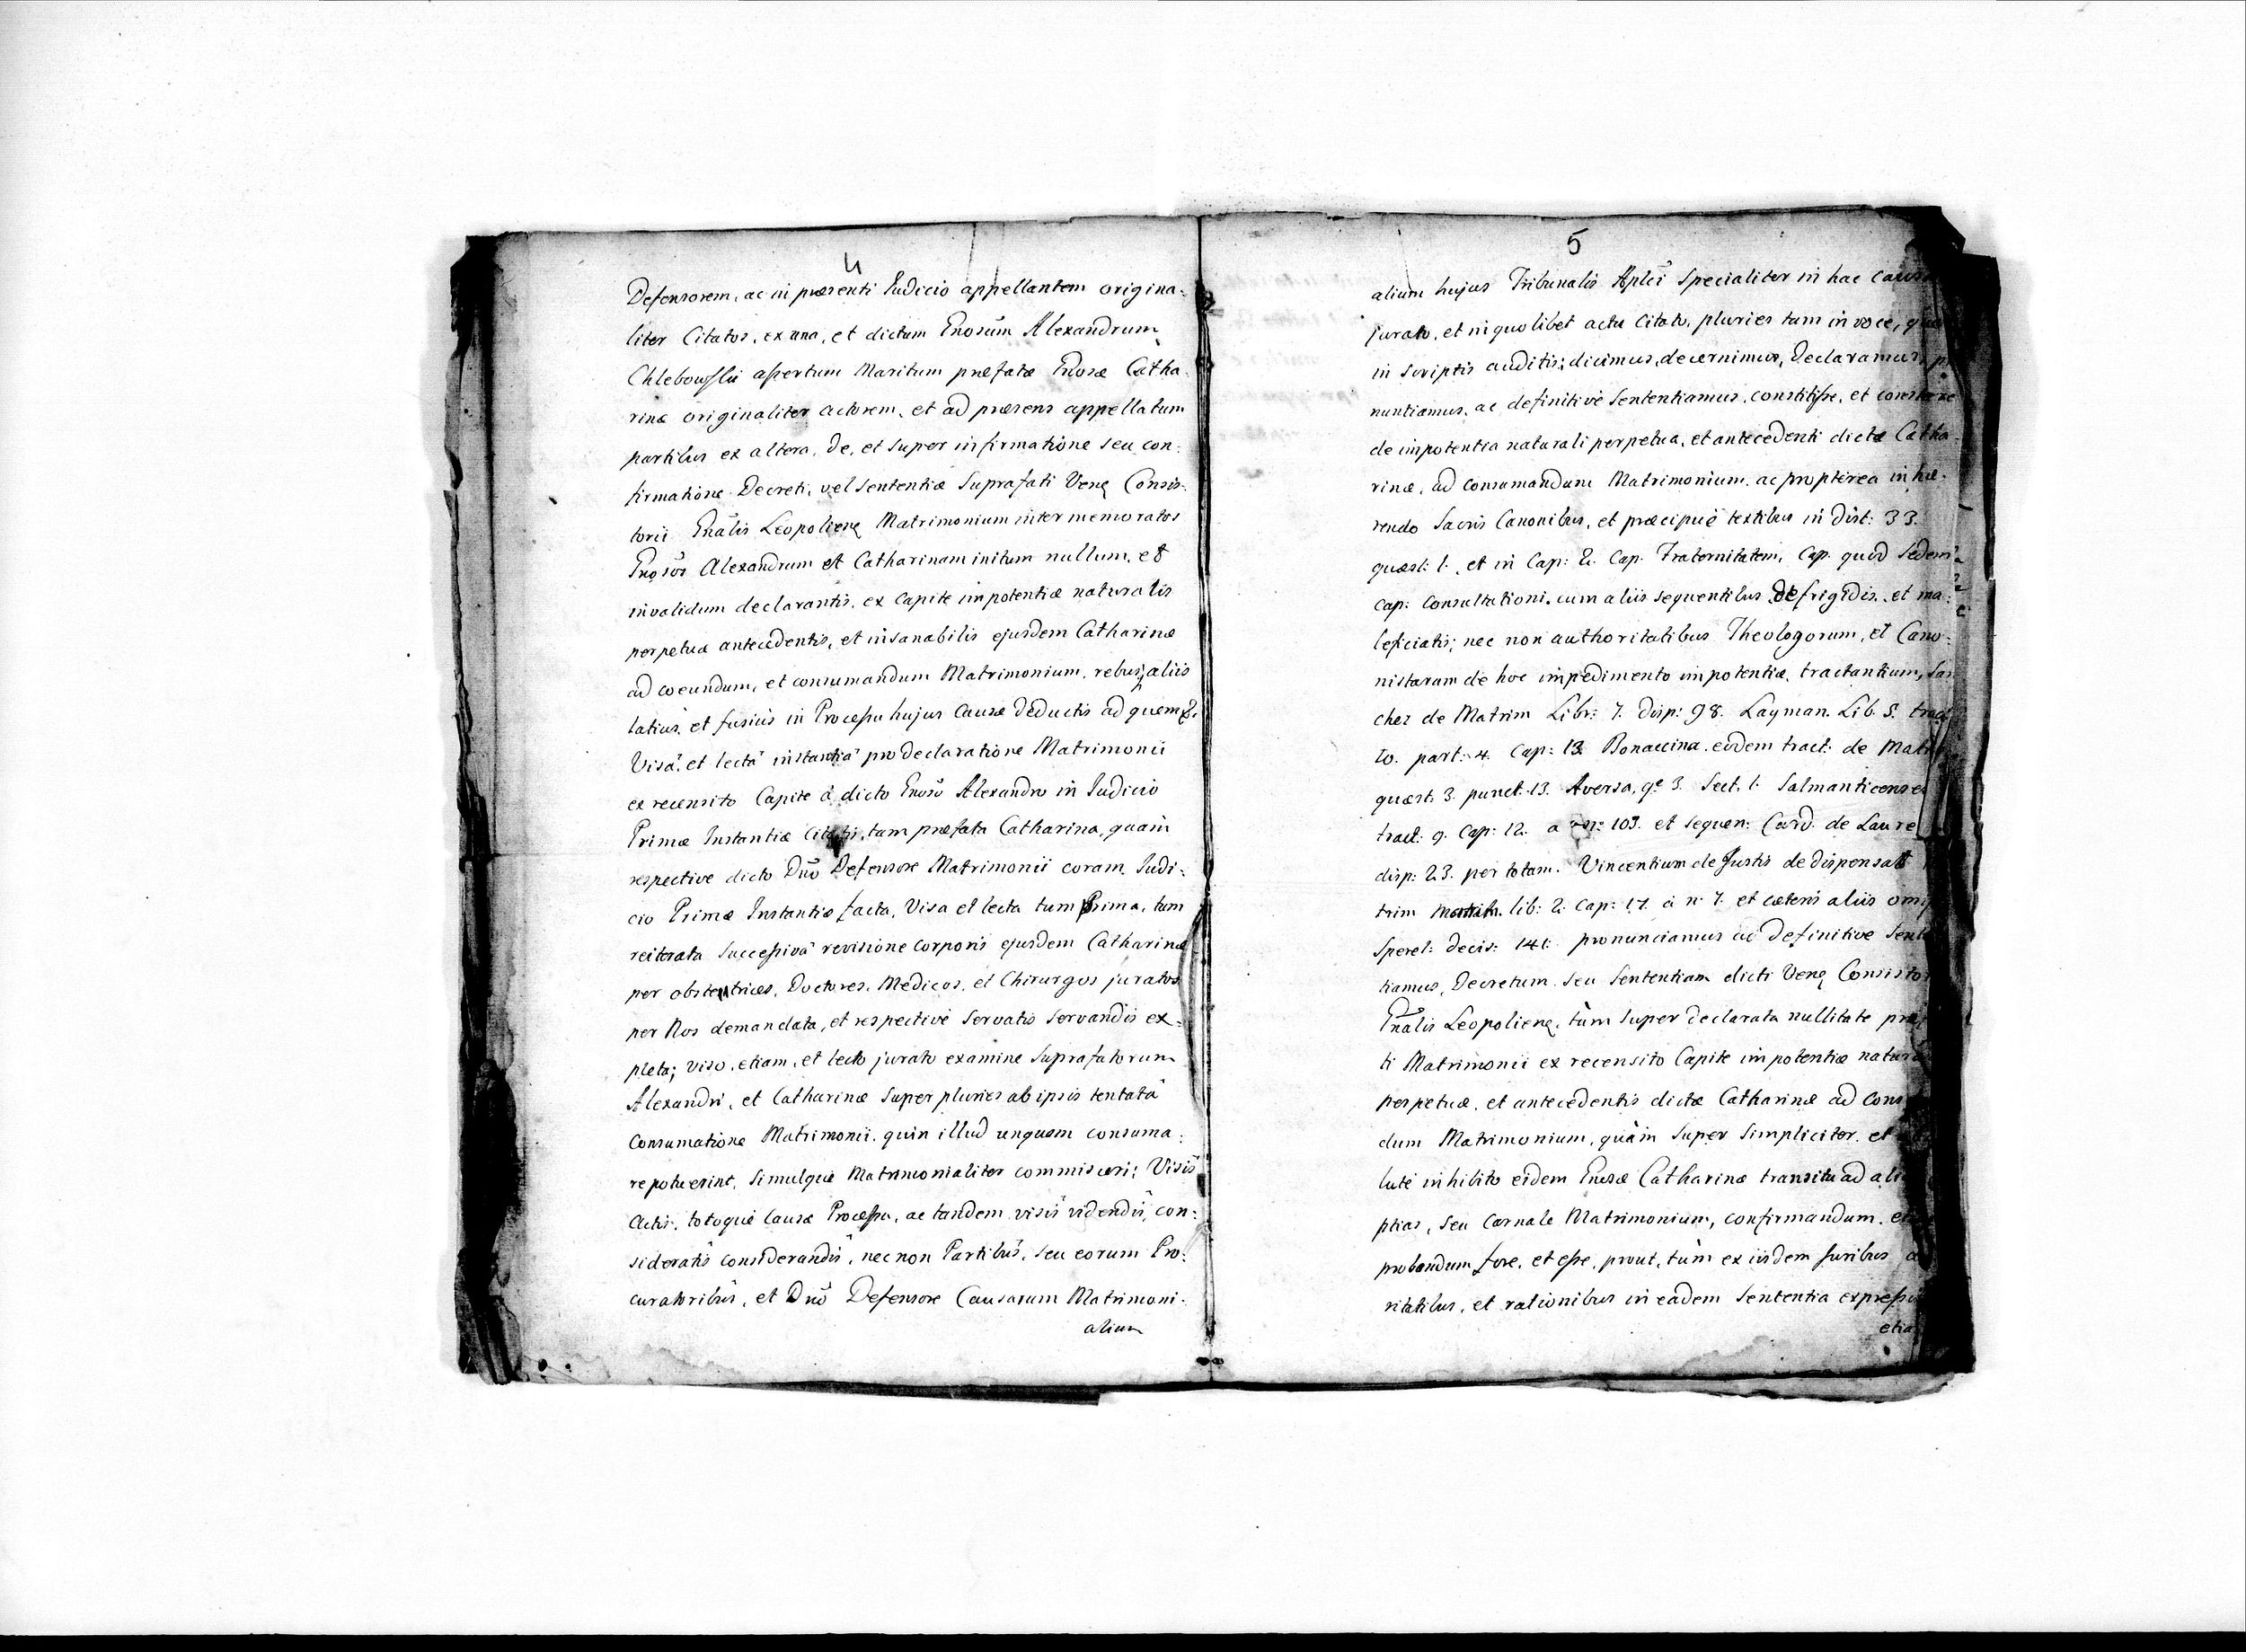 4
Defensorem, ac in præsenti Judicio appellantem origina-
liter Citatos, ex una, et dictum Gnosum Alexandrum
Chlebowski assertum Maritum præfatæ Gnosæ Catha-
rinæ originaliter actorem, et ad præsens appellatum
partibus ex altera, de, et super infirmatione seu con-
firmatione Decreti, vel Sententiæ Suprafati Venę Consis-
torii Gnalis Leopolienę Matrimonium inter memoratos
Gnosos Alexandrum et Catharinam initum nullum, et
invalidum declarantis, ex Capite impotentiæ naturalis
perpetuæ antecedentis, et insanabilis ejusdem Catharinæ
ad coeundum, et consumandum Matrimonium, rebusq aliis
latius, et fusius in Processu hujus Causæ deductis ad quem &.
Visâ, et lectâ instantiâ pro declaratione Matrimonii
ex recensito Capite à dicto Gnoso Alexandro in Judicio
Primæ Instantiæ Citatis, tam præfata Catharina, quam
respective dicto Dno Defensore Matrimonii coram Judi-
cio Primæ Instantiæ facta, Visa et lecta tum Prima, tum
reiterata Successivâ revisione Corporis ejusdem Catharinæ
per obstetrices, Doctores, Medicos, et Chirurgos juratos
per Nos demandata, et respectivè Servatis Servandis ex-
pleta; viso, etiam, et lecto jurato examine Suprafatorum
Alexandri, et Catharinæ Super pluries ab ipsis tentatâ
Consumatione Matrimonii, quin illud unquam consuma-
re potuerint, Simulquè Matrimonialiter commisceri; Visis
Actis, totoquè Causæ Processu, ac tandem visis videndis, con-
sideratis considerandis, nec non Partibus, seu eorum Pro-
curatoribus, et Dno Defensore Causarum Matrimoni-
alium
5
alium hujus Tribunalis Aplci Specialiter in hac Causa
jurato, et in quolibet actu Citato, pluries tam in voce,
in Scriptis auditis; dicimus, decernimus, Declaramus,
nuntiamus, ac definitivè Sententiamus, constitisse, et constare
de impotentia naturali perpetua, et antecedenti dictæ Catha-
rinæ, ad consumandum Matrimonium, ac propterea inhæ-
rendo Sacris Canonibus, et præcipuè textibus in Dist: 33.
quæst: 1. et in Cap: 2. Cap. Fraternitatem, Cap. quod Sedem
Cap: Consultationi, cum aliis sequentibus de frigidis, et ma-
leficiatis; nec non authoritatibus Theologorum, et Cano-
nistarum de hoc impedimento impotentiæ, tractantium, San
chez de Matrim Libr: 7. Disp: 98. Layman. Lib. 5. tract
to. part: 4. Cap: 13. Bonaccina eodem tract: de Matri
quæst: 3. punct. 13. Aversa, q.e 3. Sect. 1. Salmanticenses
tract: 9. Cap: 12. a n: 103. et sequen: Card. de Laure
disp: 23. per totam. Vincentium de Justis de dispensat
trim lib: 2. Cap: 17. à n 7. et cæteris aliis
Sperel: Decis: 141. pronunciamus ac Definitive Sent
tiamus, Decretum seu Sententiam dicti Venę Consistor
Gnalis Leopolienę, tùm Super declarata nullitate
ti Matrimonii ex recensito Capite impotentiæ natur
perpetuæ, et antecedentis dictæ Catharinæ ad Cons
dum Matrimonium, quàm Super Simpliciter, et
lutè inhibito eidem Gnosæ Catharinæ transitu ad ali
ptias, Seu Carnale Matrimonium, confirmandum, et
probandum fore, et esse, prout, tùm ex iisdem Juribus
ritatibus, et rationibus in eadem Sententia expressis
etia